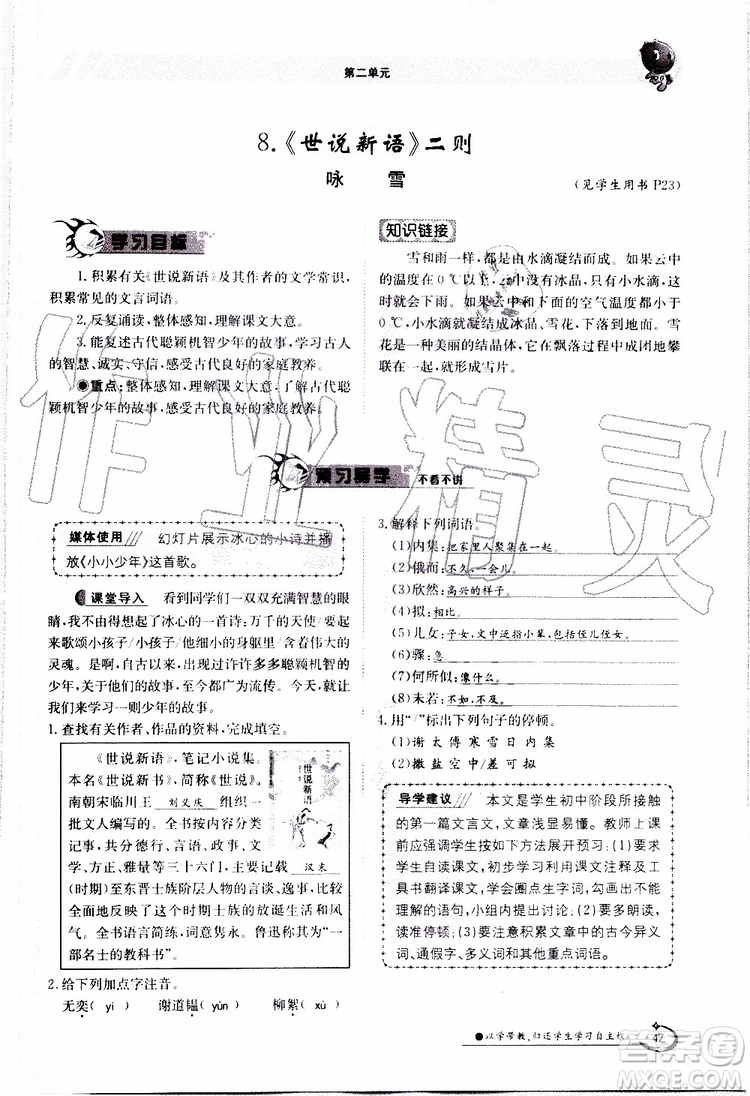 第二单元
8.《世说新语》二则
咏 雪
(见学生用书 P23)
学习目标
1.积累有关《世说新语》及其作者的文学常识,
积累常见的文言词语。
2.反复诵读,整体感知,理解课文大意。
3.能复述古代聪颖机智少年的故事,学习古人
的智慧、诚实、守信,感受古代良好的家庭教养。
●重点:整体感知,理解课文大意,了解古代聪
颖机智少年的故事,感受古代良好的家庭教养。
知识链接
雪和雨一样,都是由水滴凝结而成。如果云中
的温度在0℃以上,云中没有冰晶,只有小水滴,就
会下雨。如果云中和下面的空气温度低于
0℃,小水滴就凝结成冰晶、雪花,下落到地面。雪
花是一种美丽的结晶体,它在飘落过程中成团地攀
联在一起,就形成雪片。
预习导学 不看不讲
媒体使用 幻灯片展示冰心的小诗并播
放《小小少年》这首歌。
课堂导入 看到同学们一双双充满智慧的眼
睛,我不由得想起了冰心的一首诗:万千的天使,要起
来歌颂小孩子/小孩子!细小的身躯里/含着伟大的
灵魂。从古至今,出现过许许多多聪颖机智的
少年,关于他们的故事,至今都广为流传。今天就让
我们来学习一则少年的故事。
1.查找有关作者、作品的资料,完成填空。
《世说新语》,笔记小说集。
本名《世说新书》,简称《世说》。
南朝宋临川王 刘义庆 组织一
批文人编写的。全书按内容分类
记事,共分德行、言语、政事、
文学、方正、雅量等三十六门,主要记载 汉末
(时期)至东晋士族阶层人物的言谈、逸事,比较
全面地反映了这个时期士族的思想、生活和风
气。全书语言简练,词意隽永。鲁迅称其为“一
部名士的教科书”。
世说新语
2.给下列加点字注音。
无奕( yì ) 谢道韫( yùn ) 柳絮( xù )
3.解释下列词语。
(1)内集:把家里人聚集在一起。
(2)俄而:不久,一会儿。
(3)欣然:高兴的样子。
(4)拟:相比。
(5)儿女:子女,文中泛指小辈,包括侄儿侄女。
(6)骤:急
(7)何所似:像什么。
(8)未若:不如,不及。
4.用“/”标出下列句子的停顿。
(1)谢太傅寒雪日内集
(2)撒盐空中/差可拟
导学建议 本文是学生初中阶段所接触
的第一篇文言文,文章浅显易懂。教师上课
前应强调学生按如下方法展开预习:(1)要求
学生自读课文,初步学习利用课文注释及工
具书翻译课文,学会圈点生字词,勾画不能
理解的语句,小组内提出讨论;(2)要多朗读,
读准停顿;(3)要注意积累文章中的古今异义
词、通假字、多义词和其他重点词语。
●以学带教,归还学生学习自主权
47
作业精灵
答案圈
MXQE.COM